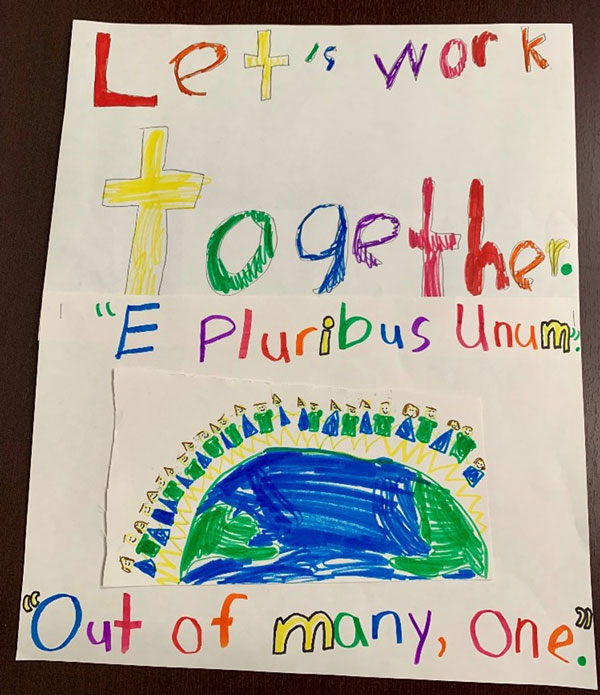 Let's work
together.
"E Pluribus Unum".
"Out of many, one."